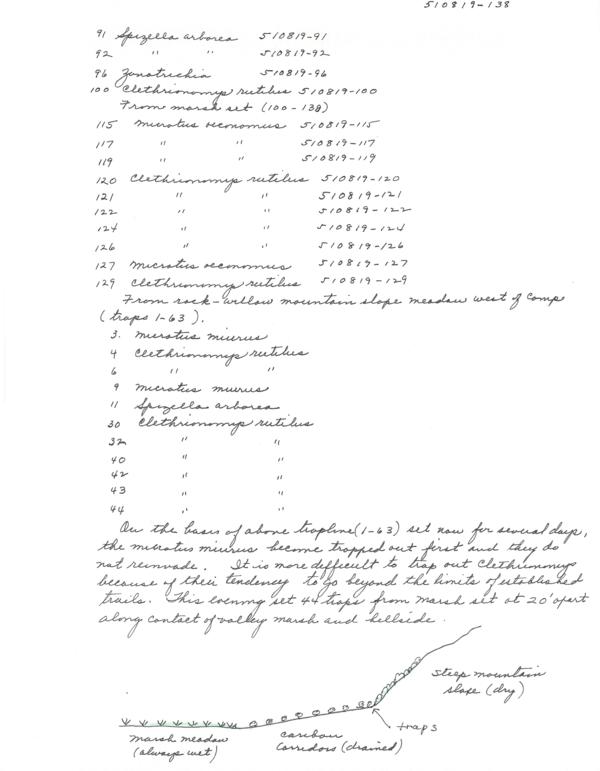 510819-138
91 Spizella arborea 510819-91
92 " " 510819-92
96 Zonotrichia 510819-96
100 Clethrionomys rutilus 510819-100
From marsh set (100-138)
115 Microtus oeconomus 510819-115
117 " " 510819-117
119 " " 510819-119
120 Clethrionomys rutilus 510819-120
121 " " 510819-121
122 " " 510819-122
124 " " 510819-124
126 " " 510819-126
127 Microtus oeconomus 510819-127
129 Clethrionomys rutilus 510819-129
From rock-willow mountain slope meadow west of camp
(traps 1-63).
3. Microtus miurus
4 Clethrionomys rutilus
6 " "
9 Microtus miurus
11 Spizella arborea
30 Clethrionomys rutilus
32 " "
40 " "
42 " "
43 " "
44 " "
On the basis of above trapline (1-63) set now for several days,
the microtus miurus become trapped out first and they do
not reinvade. It is more difficult to trap out Clethrionomys
because of their tendency to go beyond the limits of established
trails. This evening set 44 traps from marsh set at 20' apart
along contact of valley marsh and hillside.
steep mountain
slope (dry)
traps
marsh meadow
(always wet)
caribou
corridors (drained)